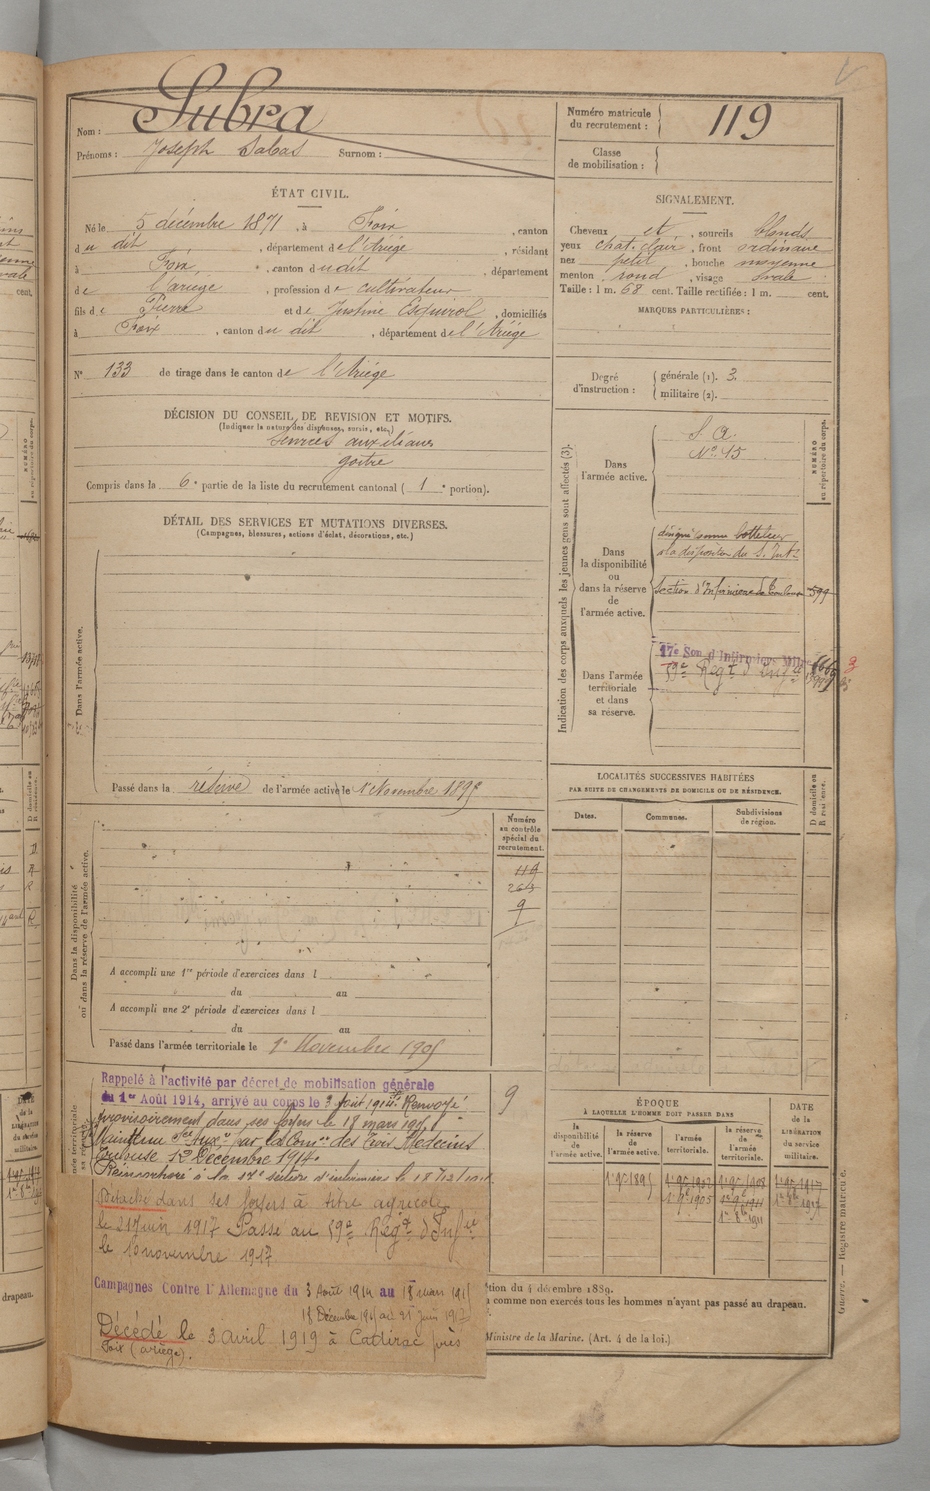 Nom : Subra
Prénoms : Joseph Sabas Surnom :
Numéro matricule du recrutement : 119
Classe de mobilisation :
ÉTAT CIVIL.
Né le 5 décembre 1871, à Foix, canton
du dit, département de l'Ariège, résidant
à Foix, canton du dit, département
de l'ariege, profession de cultivateur
fils de Pierre et de Justine Esquirol, domiciliés
à Foix, canton du dit, département de l'Ariège
N° 133 de tirage dans le canton de l'Ariége
DÉCISION DU CONSEIL DE REVISION ET MOTIFS.
(Indiquer la nature des dispenses, sursis, etc.)
services auxiliaires
goitre
Compris dans la 6e partie de la liste du recrutement cantonal ( 1 e portion).
SIGNALEMENT.
Cheveux et, sourcils blonds
yeux chat. clair, front ordinaire
nez petit, bouche moyenne
menton rond, visage ovale
Taille : 1 m. 68 cent. Taille rectifiée : 1 m. cent.
MARQUES PARTICULIÈRES :
Degré d'instruction : générale (1). 3.
militaire (2).
DÉTAIL DES SERVICES ET MUTATIONS DIVERSES.
(Campagnes, blessures, actions d'éclat, décorations, etc.)
Dans l'armée active.
Passé dans la réserve de l'armée active le 1er Novembre 1895
Indication des corps auxquels les jeunes gens sont affectés (3).
NUMÉRO au répertoire du corps.
Dans l'armée active.
S. A.
N° 15
Dans la disponibilité ou dans la réserve de l'armée active.
désigné comme botteleur
à la disposition du S. Int.
Section d'Infirmiers de Toulouse 599
Dans l'armée territoriale et dans sa réserve.
17e Son d'Infirmiers Mil
59e Régt d'Infie
LOCALITÉS SUCCESSIVES HABITÉES
PAR SUITE DE CHANGEMENTS DE DOMICILE OU DE RÉSIDENCE.
Dates.
Communes.
Subdivisions de région.
D domicile ou R résidence.
Dans la disponibilité ou dans la réserve de l'armée active.
Numéro au contrôle spécial du recrutement.
119
9
A accompli une 1re période d'exercices dans l
du au
A accompli une 2e période d'exercices dans l
du au
Passé dans l'armée territoriale le 1er Novembre 1905
Rappelé à l'activité par décret de mobilisation générale
du 1er Août 1914, arrivé au corps le 3 Août 1914. Renvoyé
provisoirement dans ses foyers le 18 mars 1915
Maintenu Sce Aux. par la Comon des Trois Médecins
Toulouse 12 Décembre 1914.
Réincorporé à la 17e section d'infirmiers le 18
9
Détaché dans ses foyers à titre agricole
le 21 Juin 1917 Passé au 59e Régt d'Infie
le 10 novembre 1917
Campagnes Contre l'Allemagne du 3 Août 1914 au 18 mars 1915
18 Décembre 1915 au 21 Juin 1917
Décédé le 3 avril 1919 à Cadirac près
Foix (ariège).
ÉPOQUE
À LAQUELLE L'HOMME DOIT PASSER DANS
la disponibilité de l'armée active.
la réserve de l'armée active.
l'armée territoriale.
la réserve de l'armée territoriale.
DATE de la LIBÉRATION du service militaire.
1er 9e 1895
1er 9e 1905
1er 8e 1911
tion du 4 décembre 1889.
comme non exercés tous les hommes n'ayant pas passé au drapeau.
Ministre de la Marine. (Art. 4 de la loi.)
Guerre. — Registre matricule.